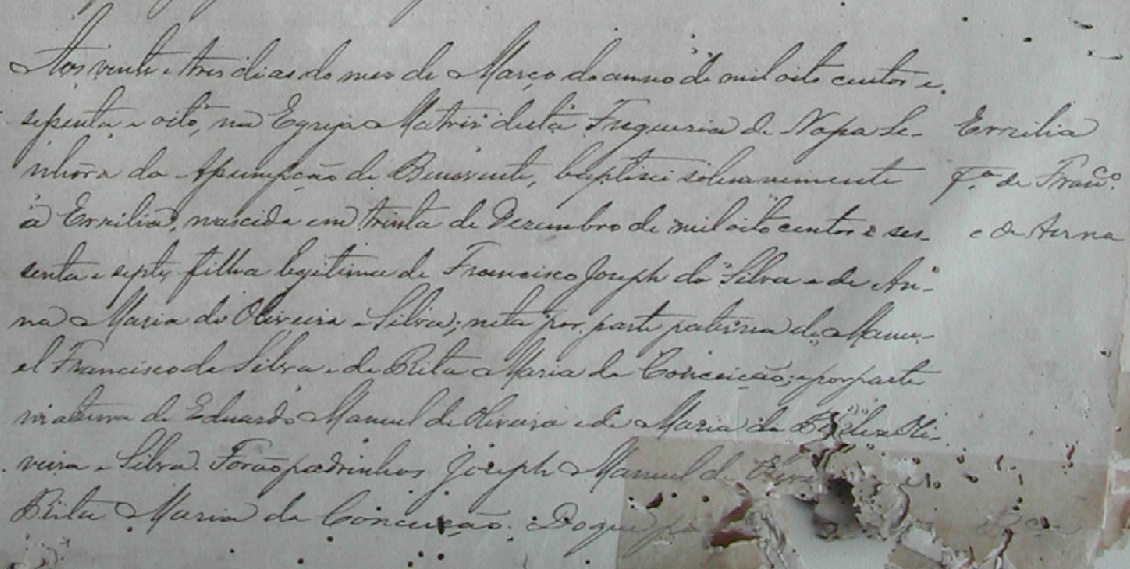 Aos vente e tres dias do mes de Março do anno de mil oito centos e
sessenta e oito, na Egreja Matris desta Freguesia de Nossa Se-
nhora da Assumpção de Benavente, baptisei solemnemente
a Ermilia, nascida em trinta de Dezembro de mil oito centos e ses-
senta e septe, filha legitima de Francisco Joseph da Silva e de An-
na Maria de Oliveira e Silva; neta por parte paterna de Manu-
el Francisco da Silva e de Rita Maria da Conceição; e por parte
materna de Eduardo Manuel de Oliveira e de Maria da Oli-
veira e Silva. Forão padrinhos Joseph Manuel de
Rita Maria da Conceição. Do que
Ermilia
Fª. de Francº.
e de Anna